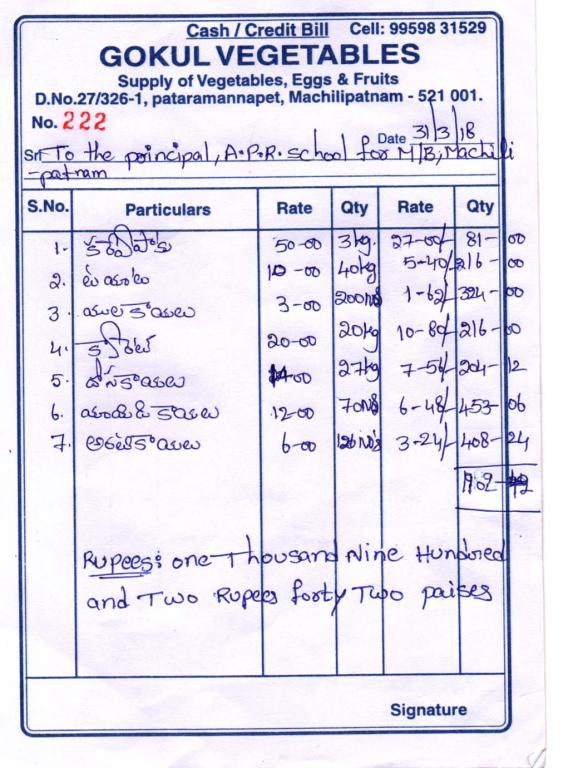 Cash / Credit Bill Cell: 99598 31529
GOKUL VEGETABLES
Supply of Vegetables, Eggs & Fruits
D.No.27/326-1, pataramannapet, Machilipatnam - 521 001.
No. 222
Date 31/3/18
Sri To the principal, A.P.R. school for M/B, Machili
-patnam
S.No. Particulars Rate Qty Rate Qty
1. కరివేపాకు 50-00 3kg. 27-00/ 81-00
2. 10-00 40kg 5-40/ 216-00
3. ములకాయలు 3-00 200Nos 1-62/ 324-00
4. క్యారెట్ 20-00 20kg 10-80/ 216-00
5. దోసకాయలు 14-00 27kg 7-56/ 204-12
6. 12-00 70Nos 6-48/ 453-06
7. అరటికాయలు 6-00 126No's 3-24/ 408-24
1902-42
Rupees: one Thousand Nine Hundred
and Two Rupees forty Two paises
Signature